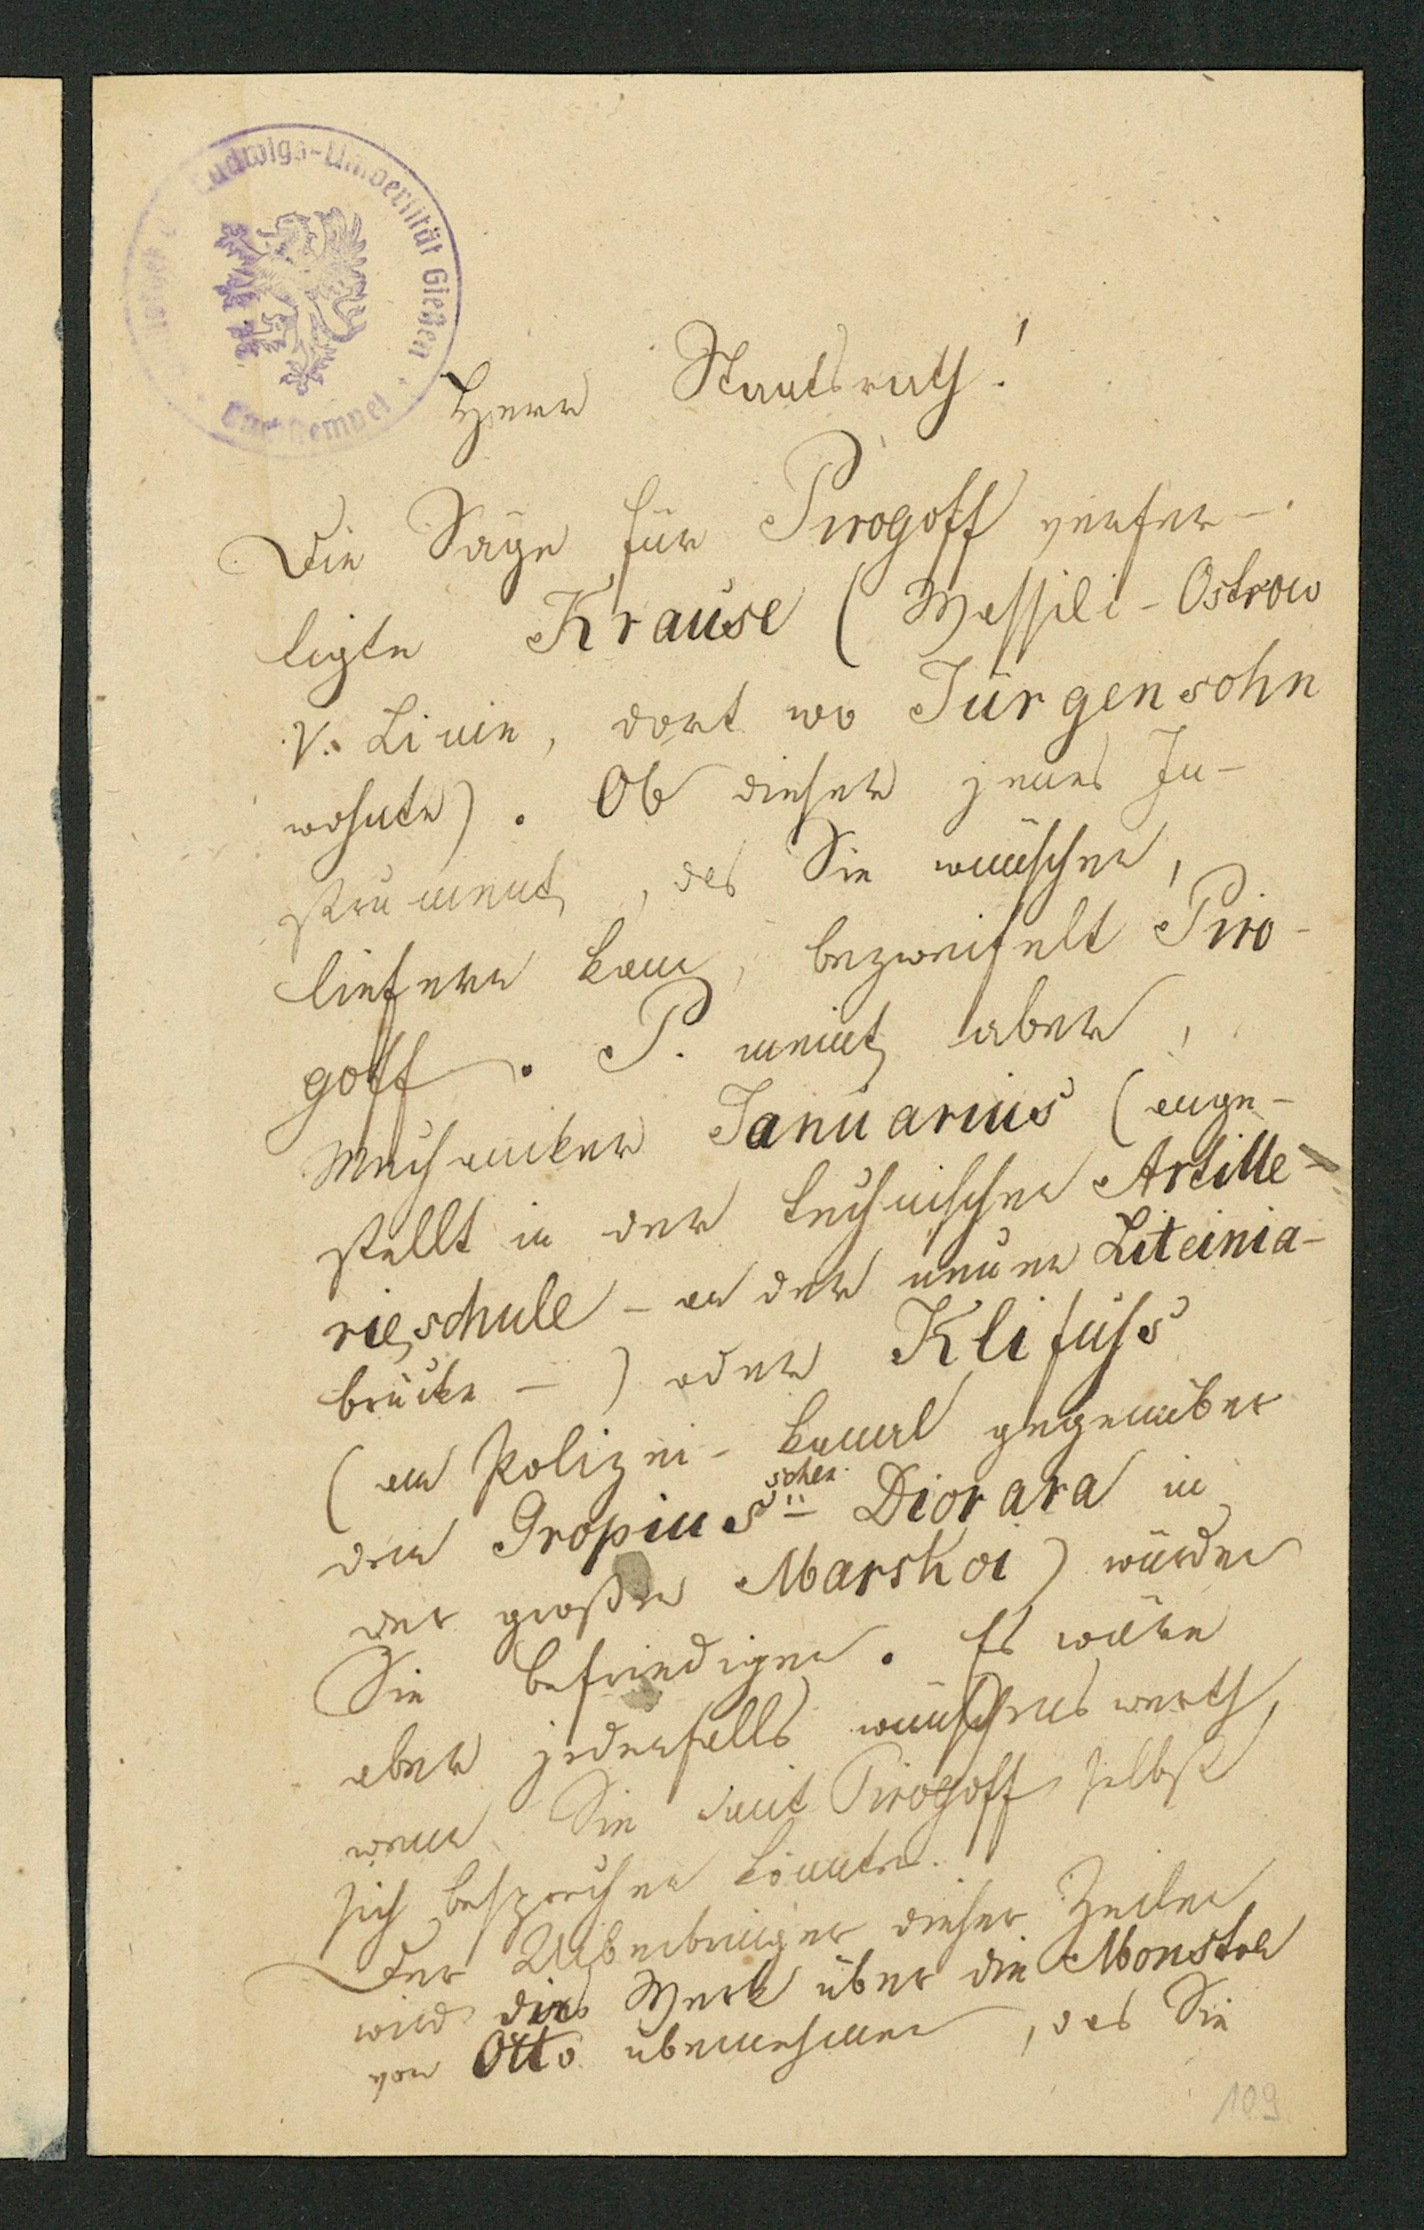 Ludwigs-Universität Gießen
Herr Staatsrath!
Die Säge für Pirogoff verfer-
tigte Krause (Wassili-Ostrow
V. Linie, dort wo Jürgensohn
wohnte). Ob dieser jenes In-
strument, das Sie wünschen,
liefern kann, bezweifelt Piro-
goff. P. meint aber,
Mechaniker Januarius (ange-
stellt in der technischen Artille-
rieschule - an der neuen Liteinia-
brücke -) oder Klifuss
(am Polizei-kanal gegenüber
dem Gropius'schen Diorara in
der großen Marskoi) würden
Sie befriedigen. Es wäre
aber jedenfalls wünschenswerth,
wenn Sie mit Pirogoff selbst
sich besprechen könnten.
Der Ueberbringer dieser Zeilen
wird das Werk über die Monstra
von Otto übernehmen, das Sie
109